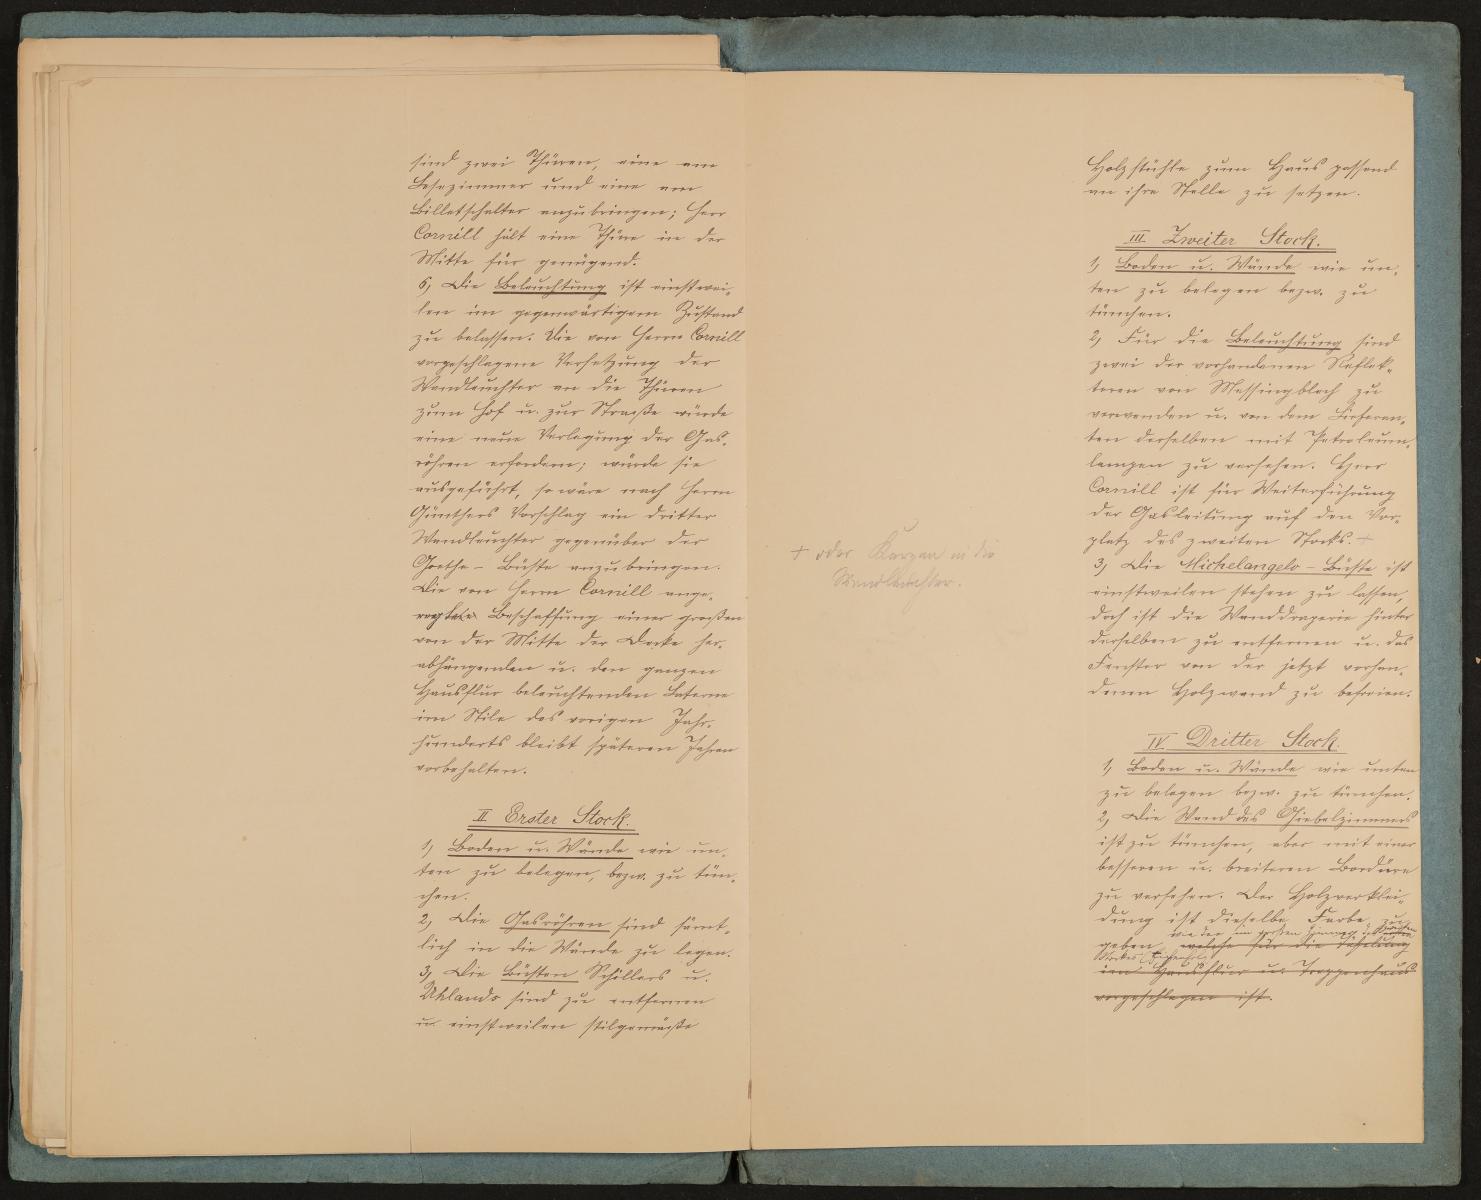 sind zwei Thüren, eine am
Lesezimmer und eine am
Billetschalter anzubringen; Herr
Cornill hält eine Thüre in der
Mitte für genügend.
6, Die Beleuchtung ist einstwei-
len im gegenwärtigen Zustand
zu belassen. Die von Herrn Cornill
vorgeschlagene Versetzung der
Wandleuchter an die Thüren
zum Hof u. zur Straße würde
eine neue Verlegung der Gas-
röhren erfordern; würde sie
ausgeführt, so wäre nach Herrn
Günthers Vorschlag ein dritter
Wandleuchter gegenüber der
Goethe-Büste anzubringen.
Die von Herrn Cornill ange-
regte Beschaffung einer großen
von der Mitte der Decke her-
abhängenden u. den ganzen
Hausflur beleuchtenden Laterne
im Stile des vorigen Jahr-
hunderts bleibt späteren Jahren
vorbehalten.
II Erster Stock.
1, Boden u. Wände wie un-
ten zu belegen, bezw. zu tün-
chen.
2, Die Gasröhren sind sämt-
lich in die Wände zu legen.
3, Die Büsten Schillers u.
Uhlands sind zu entfernen
u. einstweilen stilgemäße
+ oder Kerzen in die
Wandleuchter.
Holzstühle zum Haus passend
an ihre Stelle zu setzen.
III Zweiter Stock.
1, Boden u. Wände wie un-
ten zu belegen bezw. zu
tünchen.
2, Für die Beleuchtung sind
zwei der vorhandenen Reflek-
toren von Messingblech zu
verwenden u. von dem Lieferan-
ten derselben mit Petroleum-
lampen zu versehen. Herr
Cornill ist für Weiterführung
der Gasleitung auf den Vor-
platz des zweiten Stocks. +
3, Die Michelangelo-Büste ist
einstweilen stehen zu lassen,
doch ist die Wanddraperie hinter
derselben zu entfernen u. das
Fenster von der jetzt vorhan-
denen Holzwand zu befreien.
IV Dritter Stock.
1, Boden u. Wände wie unten
zu belegen bezw. zu tünchen.
2, Die Wand des Giebelzimmers
ist zu tünchen, aber mit einer
besseren u. breiteren Bordüre
zu versehen. Der Holzverklei-
dung ist dieselbe Farbe zu
wie der im großen Zimmer d. zweiten
geben, welche für die Täfelung
Stockes
im Hausflur u. Treppenhaus
vorgeschlagen ist.